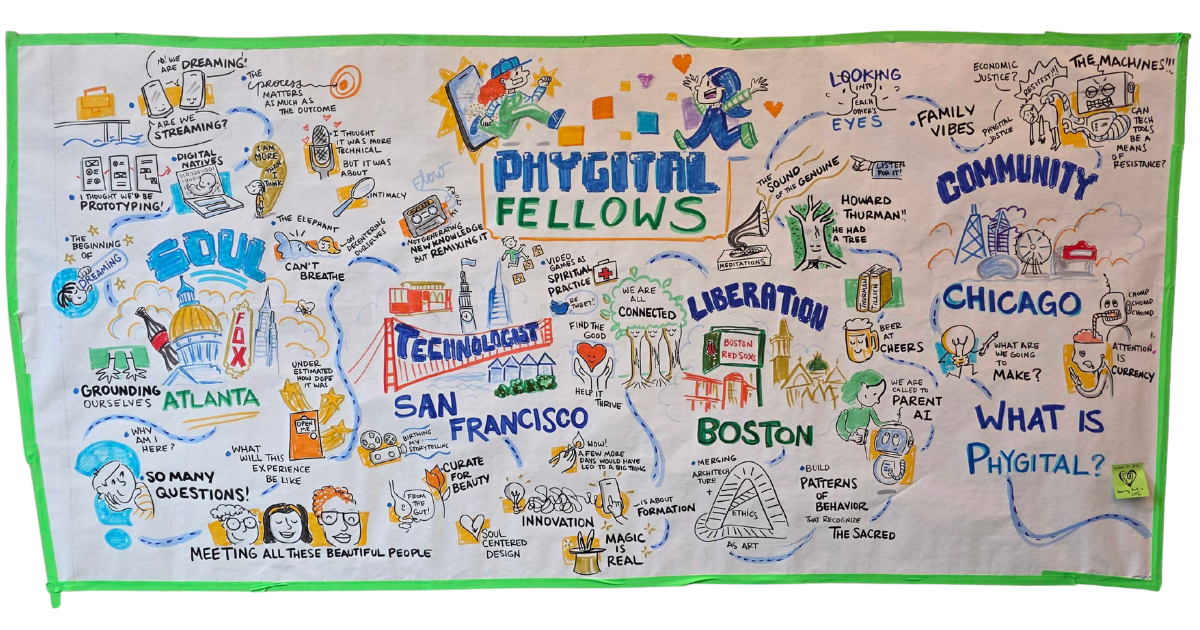 PHYGITAL
FELLOWS
NO! WE
ARE DREAMING!
ARE WE
STREAMING?
THE
process
MATTERS
AS MUCH AS
THE OUTCOME
I THOUGHT
IT WAS MORE
TECHNICAL
BUT IT WAS
ABOUT
INTIMACY
DIGITAL
NATIVES
I AM
MORE
THAN I
THINK
I THOUGHT WE'D BE
PROTOTYPING!
THE
BEGINNING
OF
DREAMING
SOUL
THE ELEPHANT
CAN'T
BREATHE
DECENTERING
OURSELVES
FOX
GROUNDING
OURSELVES
ATLANTA
UNDER
ESTIMATED
HOW DOPE
IT WAS
OPEN
ME
WHY
AM I
HERE?
SO MANY
QUESTIONS!
WHAT
WILL THIS
EXPERIENCE
BE LIKE
MEETING ALL THESE BEAUTIFUL PEOPLE
slow
NOT GENERATING
NEW KNOWLEDGE
BUT REMIXING IT
VIDEO
GAMES AS
SPIRITUAL
PRACTICE
BE
SWEET!
FIND THE
GOOD
HELP IT
THRIVE
WE ARE
ALL
CONNECTED
TECHNOLOGIST
SAN
FRANCISCO
BIRTHING
MY
STORYTELLING
FROM
THE
GUT!
CURATE
FOR
BEAUTY
SOUL
CENTERED
DESIGN
WOW!
A FEW MORE
DAYS WOULD HAVE
LED TO A BIG THING
INNOVATION
IS ABOUT
FORMATION
MAGIC
IS
REAL
LOOKING
INTO
EACH
OTHER'S
EYES
THE
SOUND
OF THE GENUINE
LISTEN
FOR IT!
HOWARD
THURMAN!!
HE HAD
A TREE
MEDITATIONS
THURMAN
ILLICH
LIBERATION
BOSTON
RED SOXS
BOSTON
BEER
AT
CHEERS
WE ARE
CALLED TO
PARENT
AI
MERGING
ARCHITECH
ATURE
+
ETHICS
AS ART
BUILD
PATTERNS
OF
BEHAVIOR
THAT RECOGNIZE
THE SACRED
FAMILY
VIBES
ECONOMIC
JUSTICE?
PHYSICAL
JUSTICE
RESIST!!!
THE MACHINES!!!
CAN
TECH
TOOLS
BE A
MEANS
OF
RESISTANCE?
COMMUNITY
CHICAGO
WHAT ARE
WE GOING
TO
MAKE?
CHOMP
CHOMP
CHOMP
ATTENTION
IS
CURRENCY
WHAT IS
PHYGITAL?